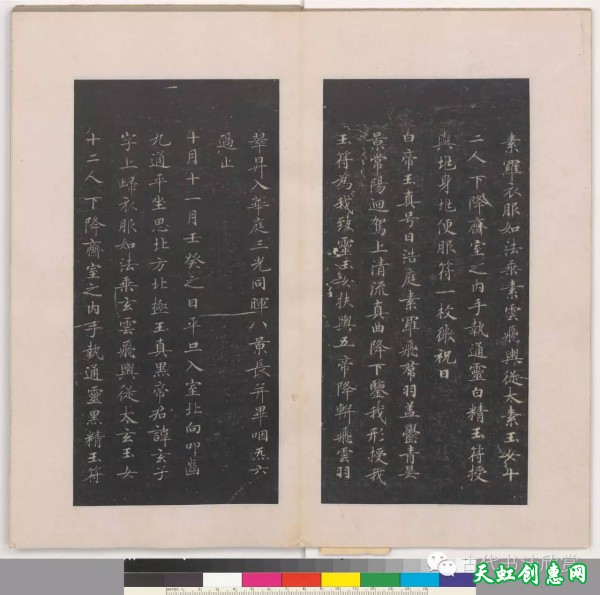 素羅衣服如法乘素雲飛輿從太素玉女十
二人下降齋室之内手執通靈白精玉符授
與兆身兆便服符一枚微祝曰
白帝玉真号曰浩庭素羅飛帬羽盖鬱青晏
景常陽迴駕上清流真曲降下鑒我形授我
玉符為我致靈玉女扶輿五帝降軿飛雲羽
翠昇入華庭三光同暉八景長并畢咽炁六
過止
十月十一月壬癸之日平旦入室北向叩齒
九通平坐思北方北極玉真黑帝君諱玄子
字上歸衣服如法乘玄雲飛輿從太玄玉女
十二人下降齋室之内手執通靈黑精玉符
古代书法欣赏
天虹创惠网